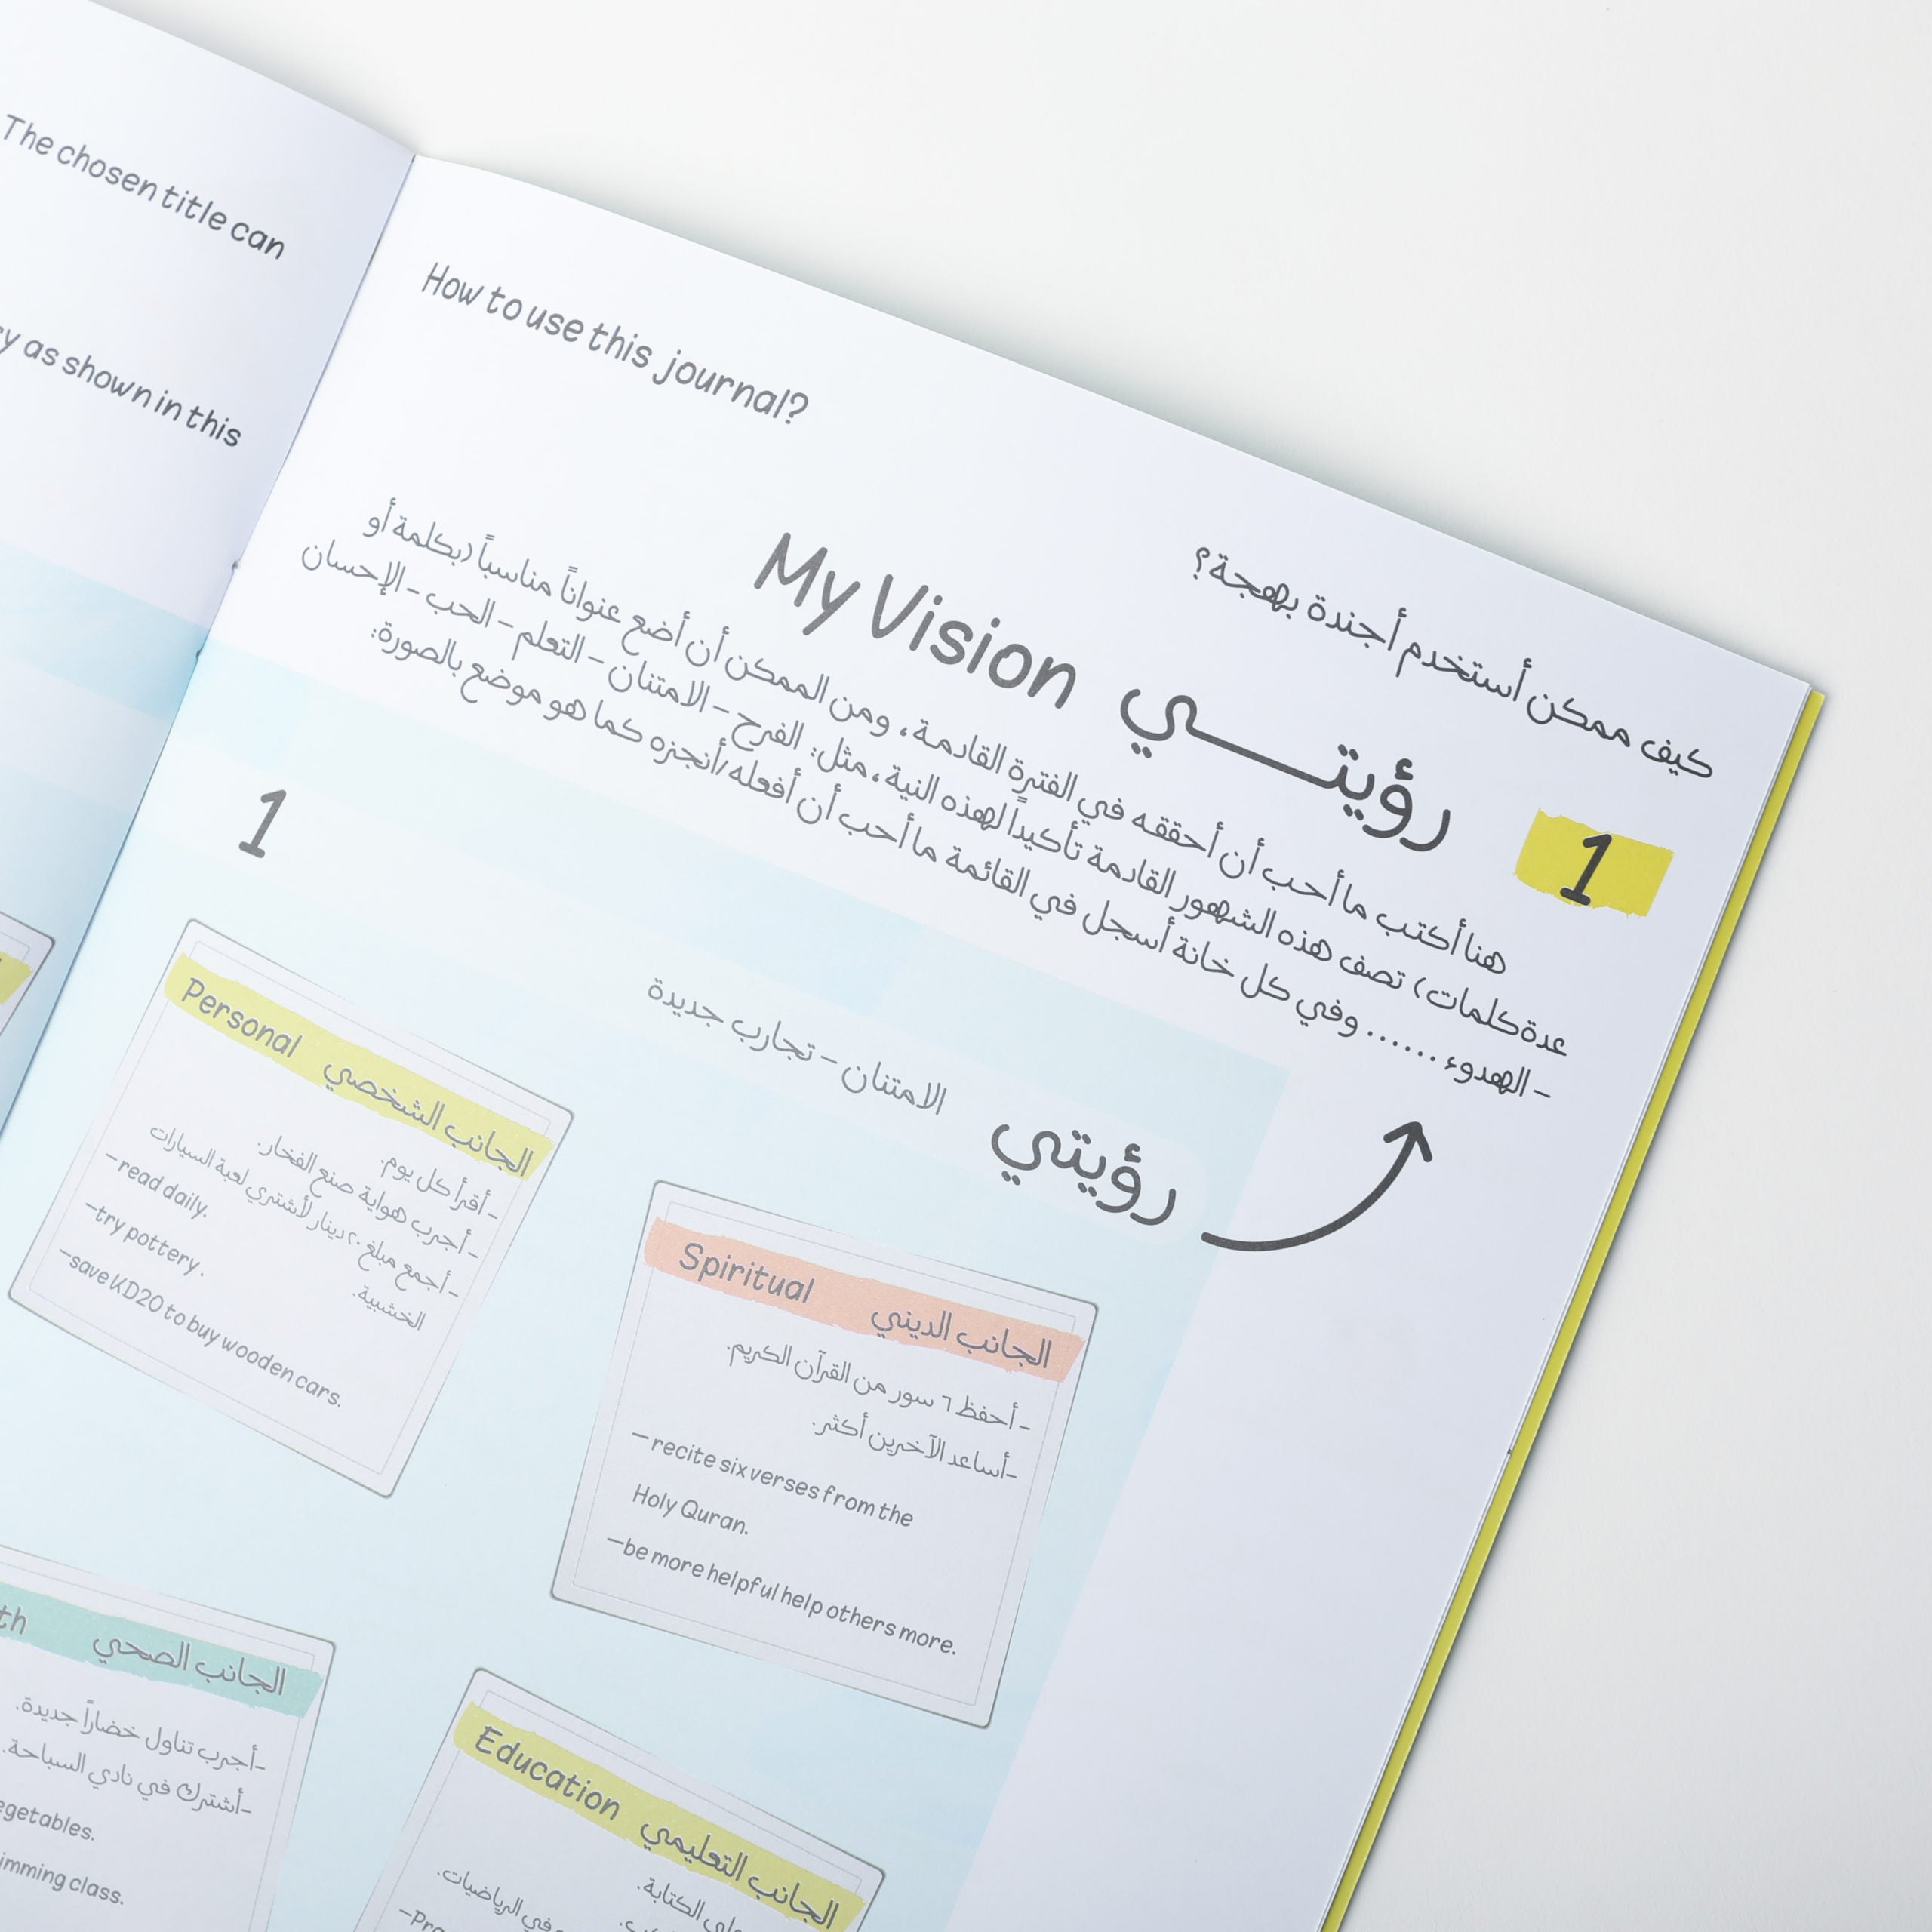 The chosen title can
as shown in this
How to use this journal?
كيف ممكن أستخدم أجندة بهجة؟
1
رؤيتـــي My Vision
هنا أكتب ما أحب أن أحققه في الفترة القادمة، ومن الممكن أن أضع عنواناً مناسباً (بكلمة أو
عدة كلمات) تصف هذه الشهور القادمة تأكيداً لهذه النية، مثل: الفرح - الامتنان - التعلم - الحب - الإحسان
- الهدوء ...... وفي كل خانة أسجل في القائمة ما أحب أن أفعله/أنجزه كما هو موضع بالصورة:
1
رؤيتي
الامتنان - تجارب جديدة
Spiritual الجانب الديني
- أحفظ ٦ سور من القرآن الكريم.
-أساعد الآخرين أكثر.
- recite six verses from the
Holy Quran.
-be more helpful help others more.
Personal الجانب الشخصي
- أقرأ كل يوم.
- أجرب هواية صنع الفخار.
- أجمع مبلغ ٢٠ دينار لأشتري لعبة السيارات
الخشبية.
-read daily.
-try pottery.
-save KD20 to buy wooden cars.
Education الجانب التعليمي
الكتابة.
في الرياضيات.
الجانب الصحي
-أجرب تناول خضاراً جديدة.
-أشترك في نادي السباحة.
class.